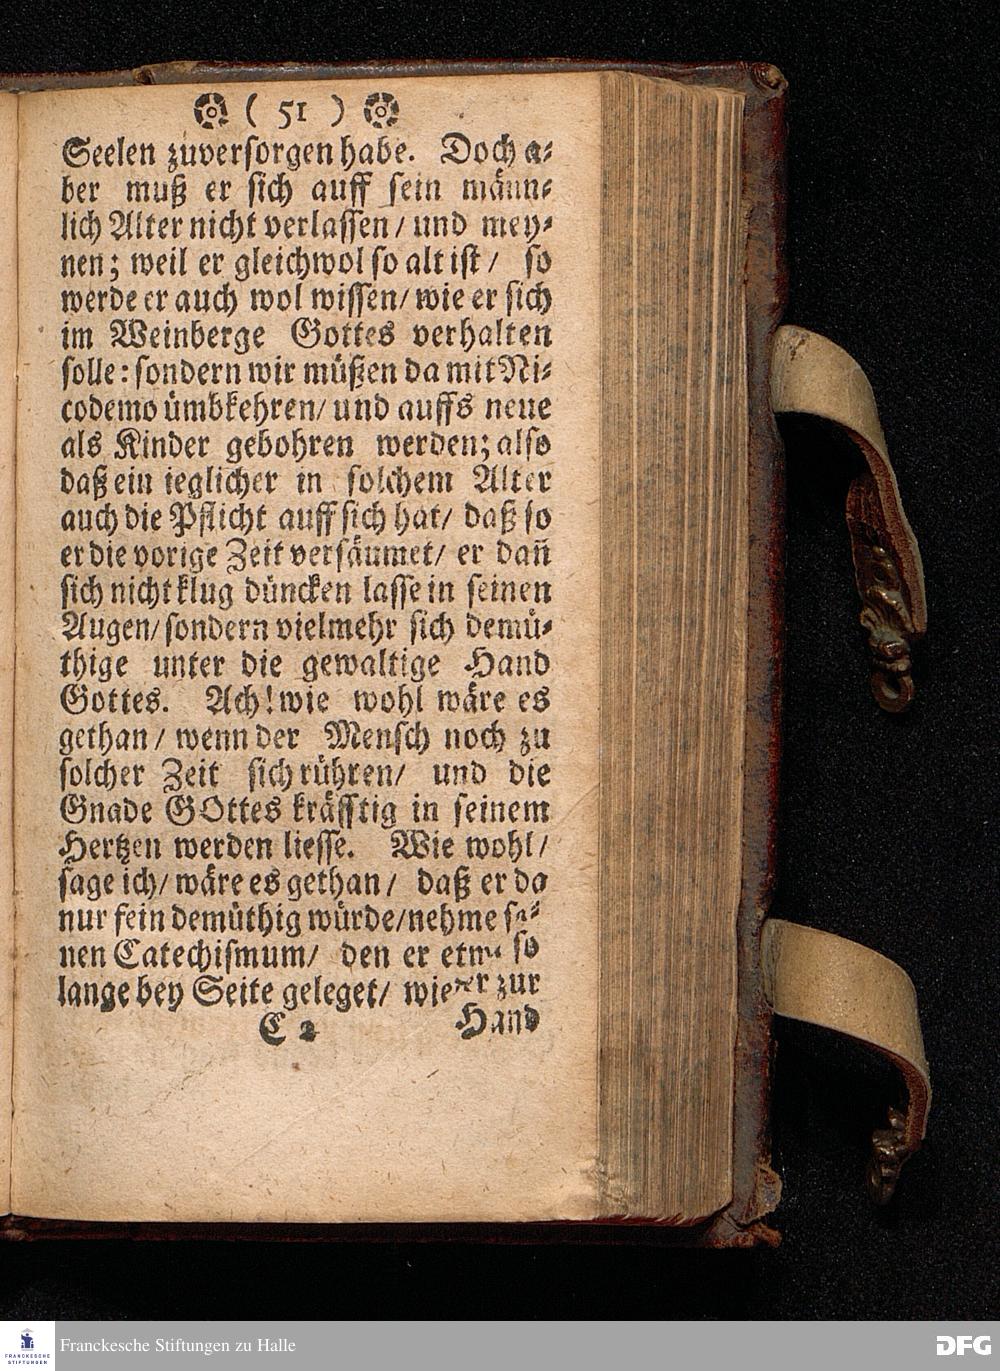 ( 51 )
Seelen zuversorgen habe. Doch a-
ber muß er sich auff sein männ-
lich Alter nicht verlassen / und mey-
nen; weil er gleichwol so alt ist / so
werde er auch wol wissen / wie er sich
im Weinberge Gottes verhalten
solle: sondern wir müßen da mit Ni-
codemo ümbkehren / und auffs neue
als Kinder gebohren werden; also
daß ein ieglicher in solchem Alter
auch die Pflicht auff sich hat / daß so
er die vorige Zeit versäumet / er dañ
sich nicht klug düncken lasse in seinen
Augen / sondern vielmehr sich demü-
thige unter die gewaltige Hand
Gottes. Ach! wie wohl wäre es
gethan / wenn der Mensch noch zu
solcher Zeit sich rühren / und die
Gnade GOttes kräfftig in seinem
Hertzen werden liesse. Wie wohl /
sage ich / wäre es gethan / daß er da
nur fein demüthig würde / nehme
nen Catechismum / den er so
lange bey Seite geleget / wieder zur
C 2 Hand
FRANCKESCHE STIFTUNGEN
Franckesche Stiftungen zu Halle
DFG